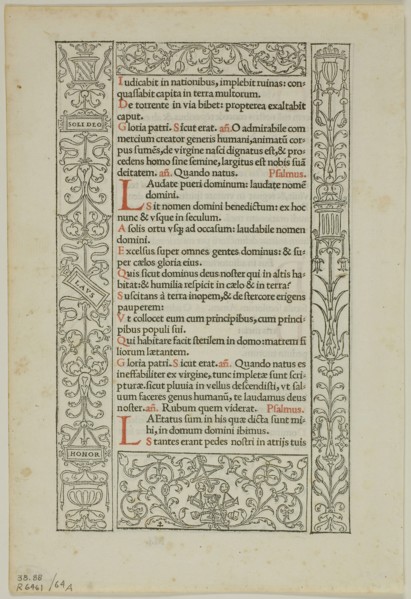 Iudicabit in nationibus, implebit ruinas: con-
quassabit capita in terra multorum.
De torrente in via bibet: propterea exaltabit
caput.
Gloria patri. Sicut erat. añ. O admirabile com
mercium creator generis humani, animatū cor-
pus sumēs, de virgine nasci dignatus est, & pro-
cedens homo sine semine, largitus est nobis suā
deitatem. añ. Quando natus. Psalmus.
LAudate pueri dominum: laudate nomē
domini.
Sit nomen domini benedictum: ex hoc
nunc & vsque in seculum.
A solis ortu vsq; ad occasum: laudabile nomen
domini.
Excelsus super omnes gentes dominus: & su-
per cælos gloria eius.
Quis sicut dominus deus noster qui in altis ha-
bitat: & humilia respicit in cælo & in terra?
Suscitans à terra inopem, & de stercore erigens
pauperem:
Vt collocet eum cum principibus, cum princi-
pibus populi sui.
Qui habitare facit sterilem in domo: matrem fi
liorum lætantem.
Gloria patri. Sicut erat. añ. Quando natus es
ineffabiliter ex virgine, tunc impletæ sunt scri-
pturæ. sicut pluuia in vellus descendisti, vt sal-
uum faceres genus humanū, te laudamus deus
noster. añ. Rubum quem viderat. Psalmus.
LAEtatus sum in his quæ dicta sunt mi-
hi, in domum domini ibimus.
Stantes erant pedes nostri in atrijs tuis
SOLI DEO
LAVS
HONOR
38.98
R6461 /64A